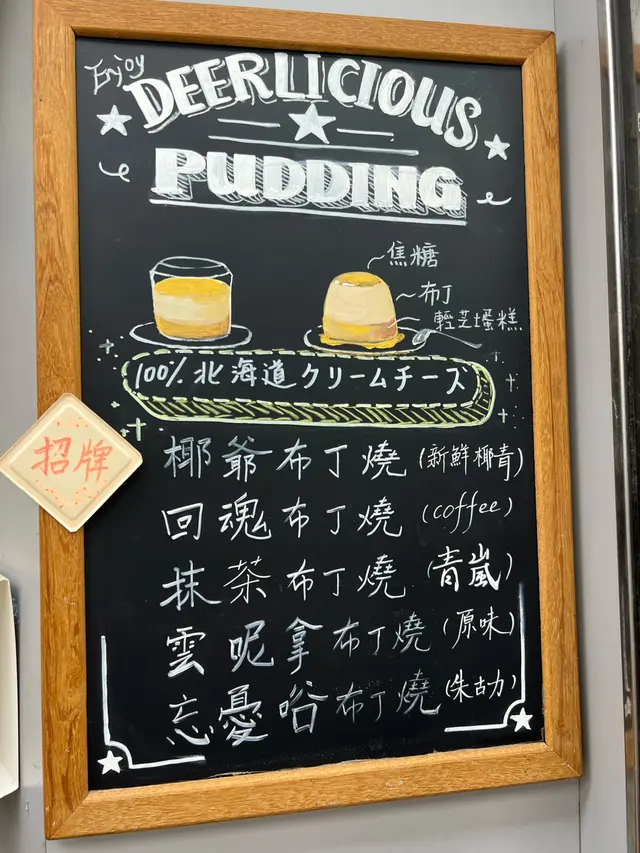 Enjoy
DEERLICIOUS
PUDDING
焦糖
布丁
輕芝士蛋糕
100% 北海道クリームチーズ
招牌
椰爺布丁燒 (新鮮椰青)
回魂布丁燒 (coffee)
抹茶布丁燒 (青嵐)
雲呢拿布丁燒 (原味)
忘憂咕布丁燒 (朱古力)